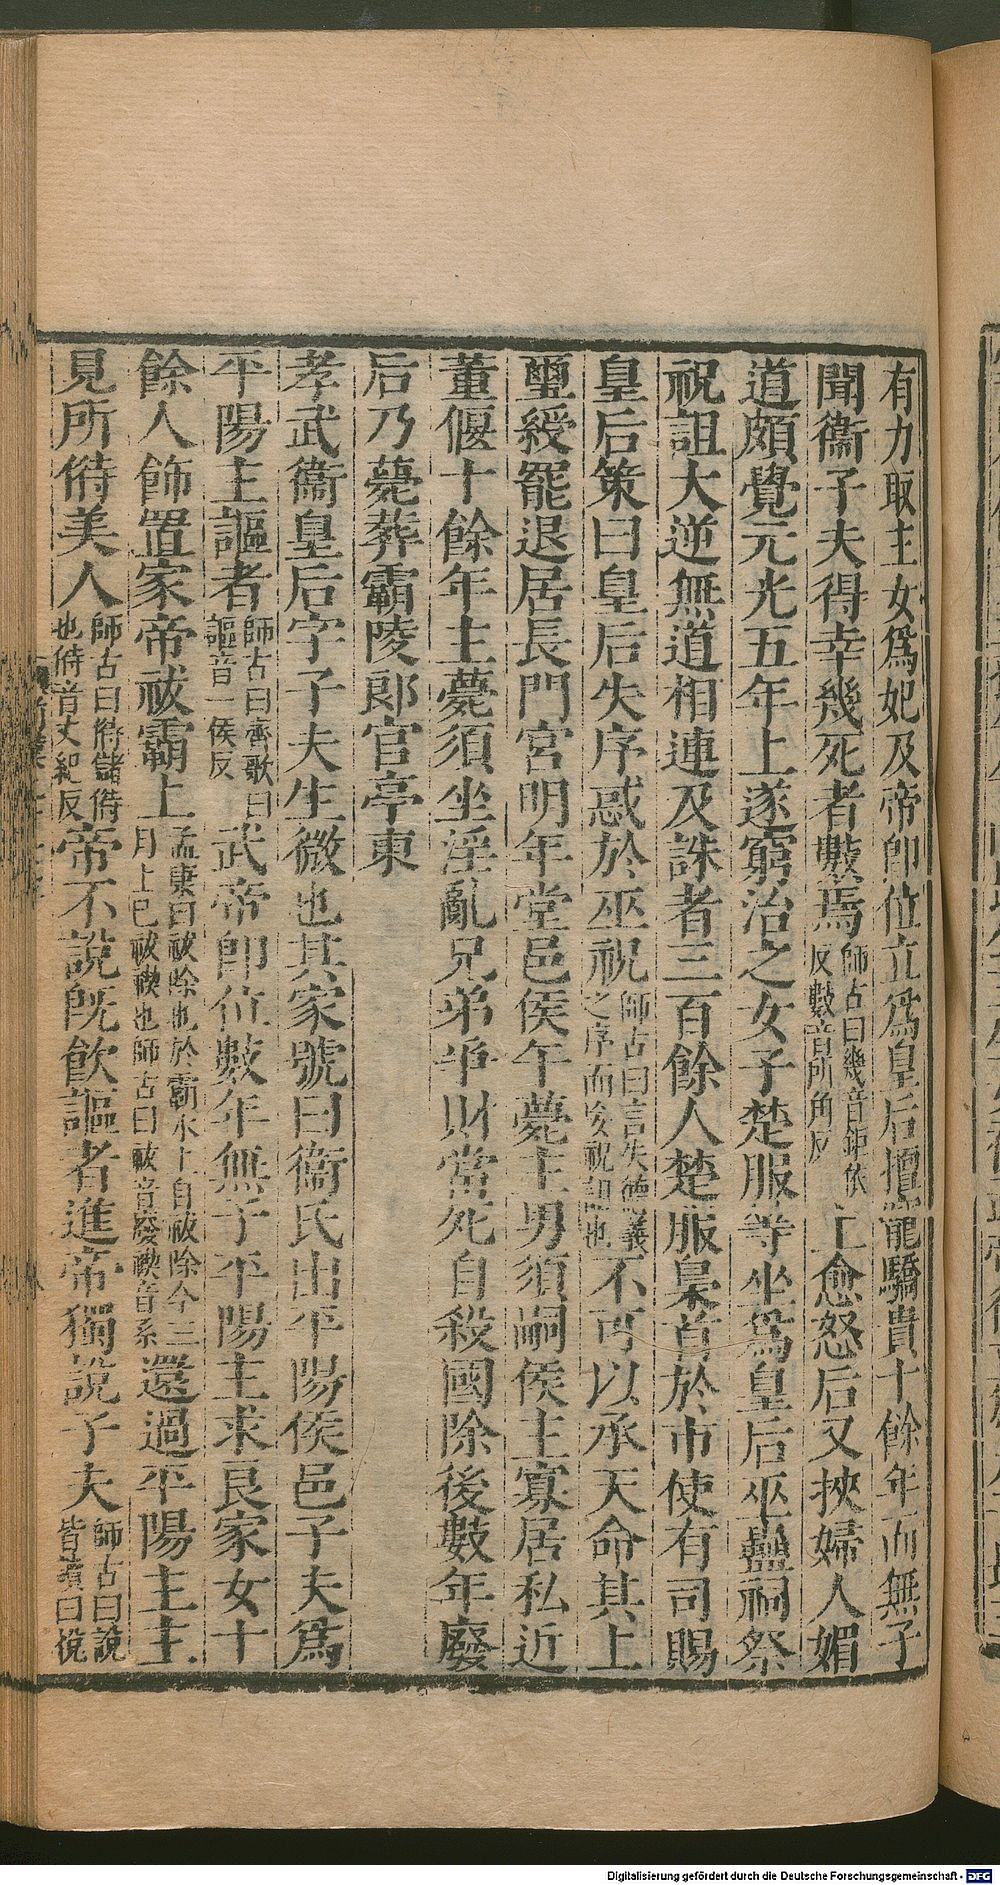 有力取主女爲妃及帝卽位立爲皇后擅寵驕貴十餘年而無子
聞衞子夫得幸幾死者數焉師古曰幾音鉅依反數音所角反上愈怒后又挾婦人媚
道頗覺元光五年上遂窮治之女子楚服等坐爲皇后巫蠱祠祭
祝詛大逆無道相連及誅者三百餘人楚服梟首於市使有司賜
皇后策曰皇后失序惑於巫祝師古曰言失德義之序而妄祝詛也不可以承天命其上
璽綬罷退居長門宮明年堂邑侯午薨主男須嗣侯主寡居私近
董偃十餘年主薨須坐淫亂兄弟爭財當死自殺國除後數年廢
后乃薨葬霸陵郎官亭東
孝武衞皇后字子夫生微也其家號曰衞氏出平陽侯邑子夫爲
平陽主謳者師古曰齊歌曰謳音一侯反武帝卽位數年無子平陽主求良家女十
餘人飾置家帝祓霸上孟康曰祓除也於霸水上自祓除今三月上巳祓禊也師古曰祓音廢禊音系還過平陽主主
見所偫美人師古曰偫儲偫也偫音丈紀反帝不說既飮謳者進帝獨說子夫師古曰說皆讀曰悅
Digitalisierung gefördert durch die Deutsche Forschungsgemeinschaft - DFG